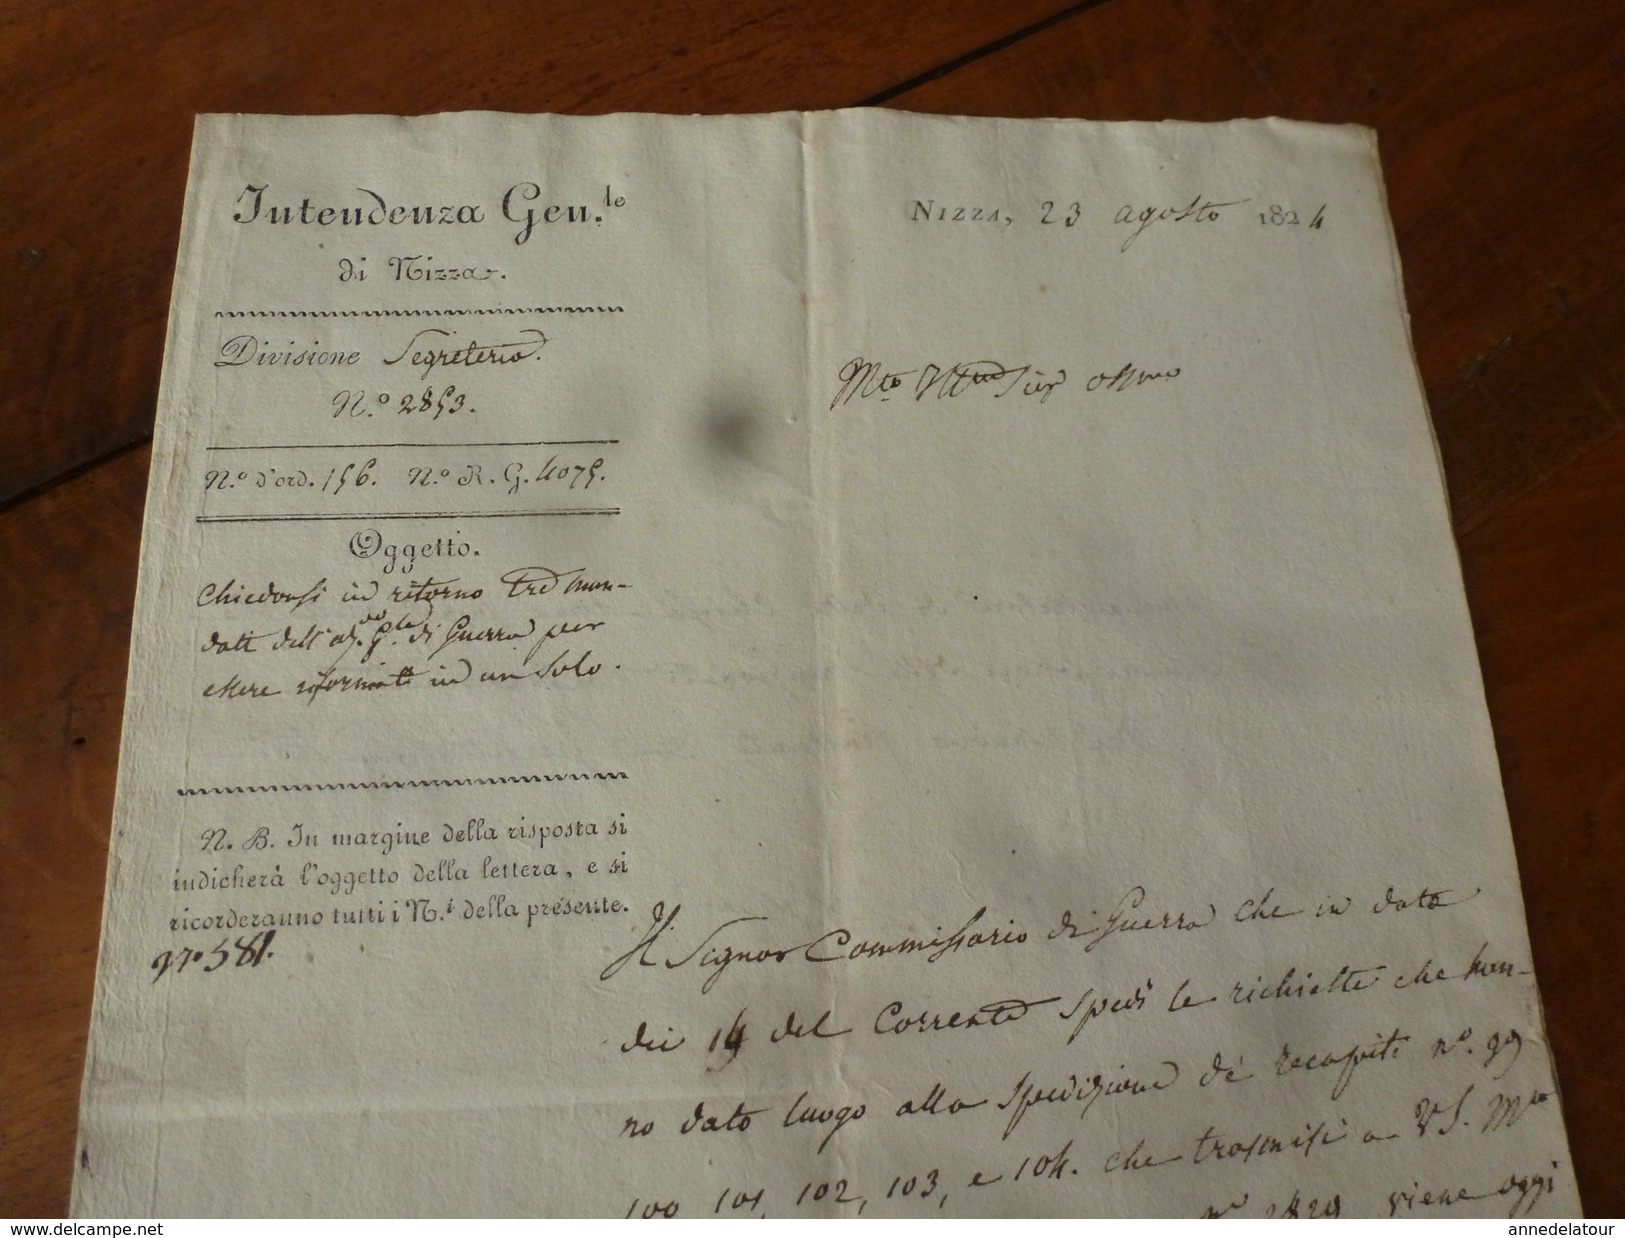 Intendenza Gen.le
di Nizza.
Divisione Segreteria.
N.o 2853.
N.o d'ord. 156. N.o R. G. 4075.
Oggetto.
Chiedonsi in ritorno tre man-
dati dell' az.da G.le di Guerra per
essere riformati in un solo.
N. B. In margine della risposta si
indicherà l'oggetto della lettera, e si
ricorderanno tutti i N.i della presente.
581.
Nizza, 23 agosto 1824
Mto Sig
Il Signor Commissario di Guerra che in data
dei 19 del Corrente spedì le richieste che han-
no dato luogo alla spedizione de' recapiti n.o 99
100 101, 102, 103, e 104. che trasmisi a VS. Mto
2829 viene oggi
www.delcampe.net
annedelatour